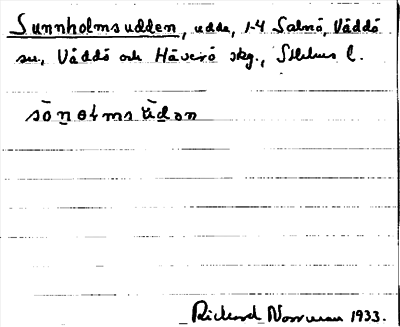 Sunnholmsudden, udde, 1-4 Salnö, Väddö
sn., Väddö och Häverö skg., Sthlms l.
sōnoɫmsūdan
Richard Norrman 1933.